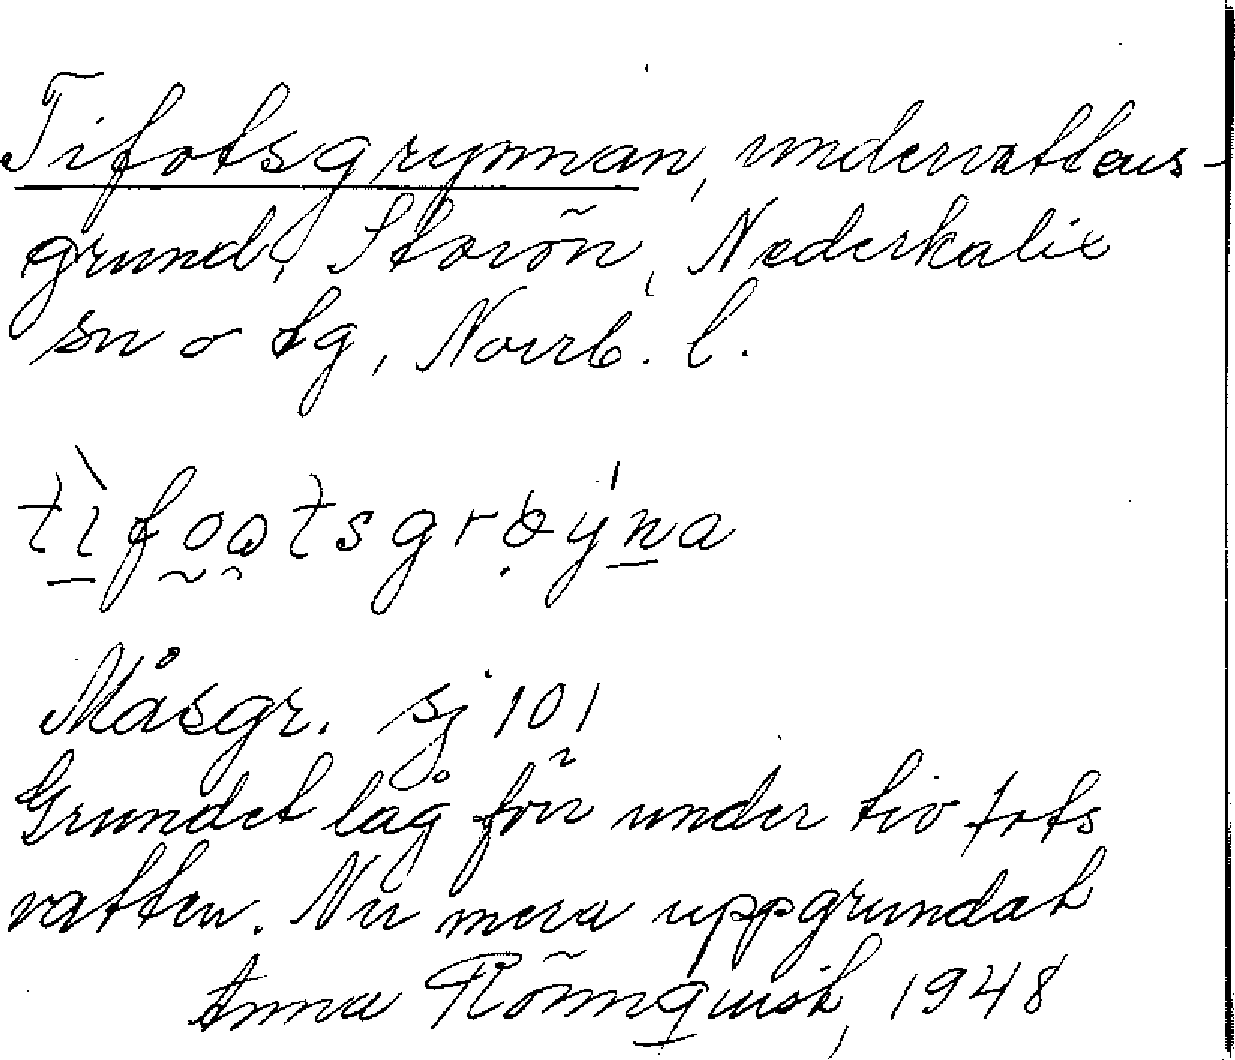 Tifotsgrynnan, undervattens-
grund, Storön, Nederkalix
sn o tg, Norrb. l.
Måsgr. sj 101
Grundet låg förr under tio fots
vatten. Nu mera uppgrundat
Anna Rönnquist, 1948